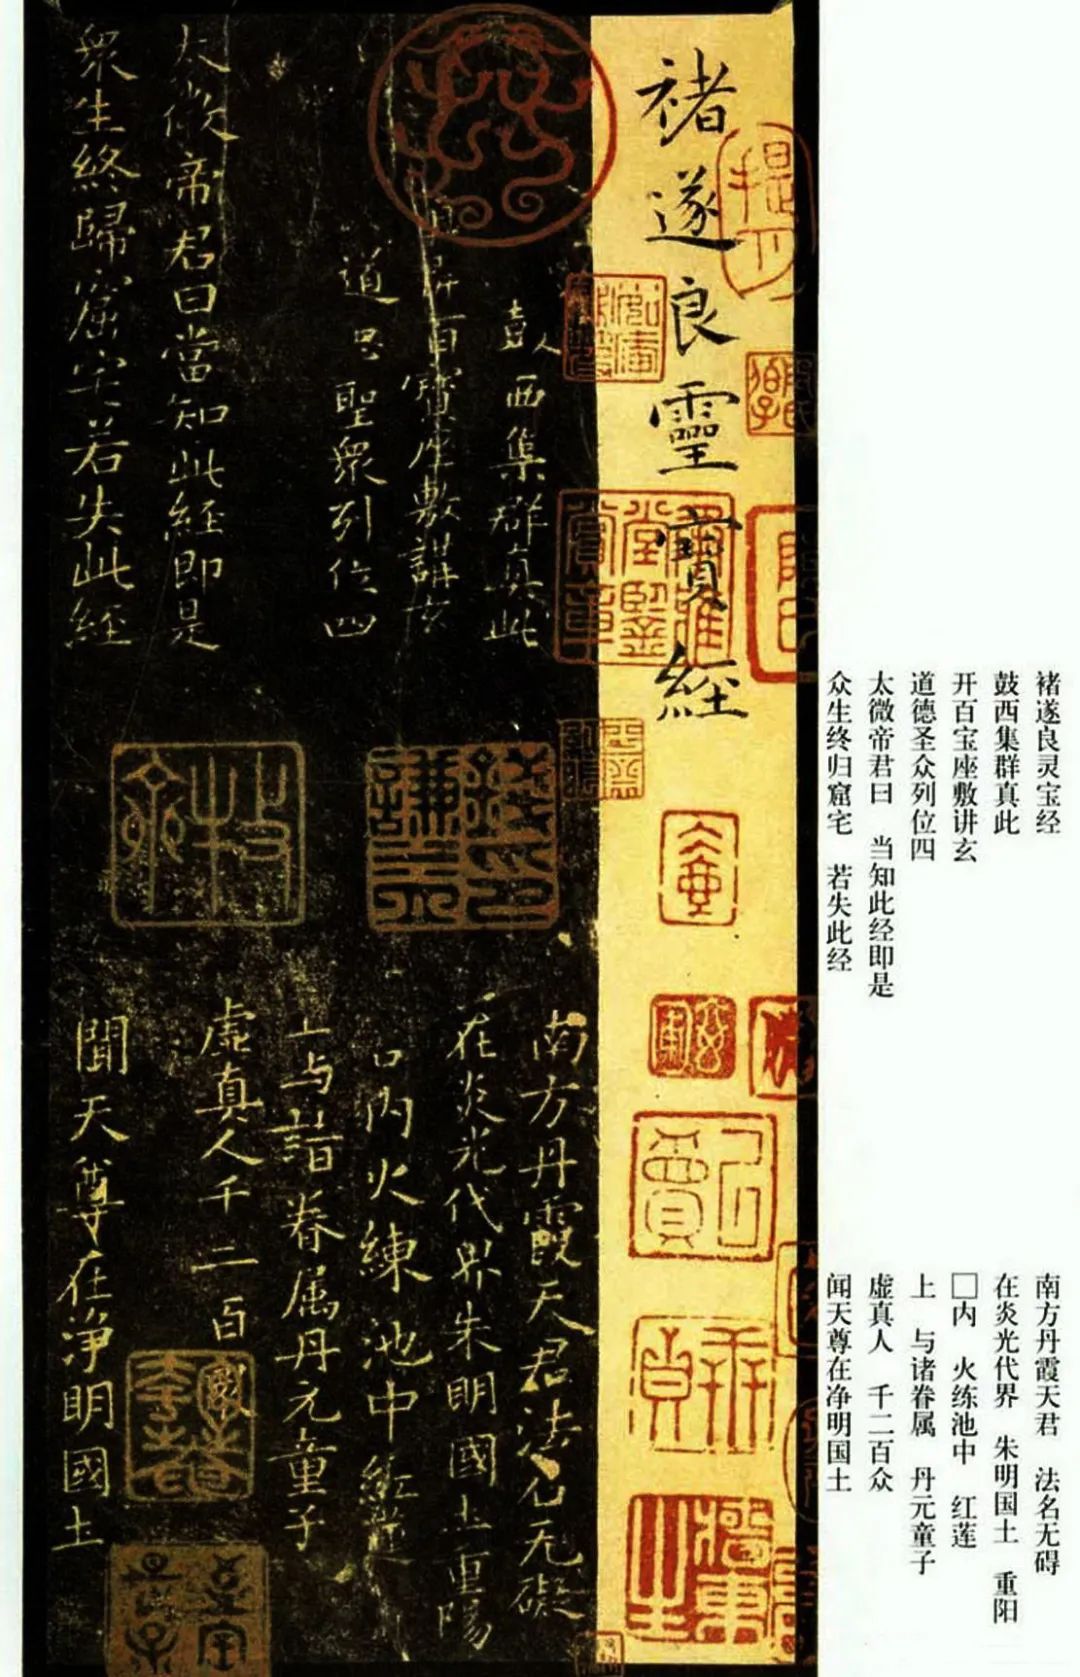 褚遂良靈寶經
鼓西集群真此
開百寶座敷講玄
道 聖眾列位四
太微帝君曰當知此経即是
眾生終歸窟宅若失此経
南方丹霞天君法名无礙
在炎光代界朱明國土重陽
内火練池中紅蓮
上与諸眷属丹元童子
虛真人千二百眾
聞天尊在净明國土
褚遂良灵宝经
鼓西集群真此
开百宝座敷讲玄
道德圣众列位四
太微帝君曰 当知此经即是
众生终归窟宅 若失此经
南方丹霞天君 法名无碍
在炎光代界 朱明国土 重阳
□内 火练池中 红莲
上 与诸眷属 丹元童子
虚真人 千二百众
闻天尊在净明国土